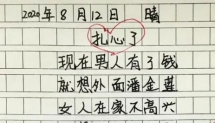 2020年8月12日 晴
扎心了
现在男人有了钱
就想外面潘金莲
女人在家不高兴